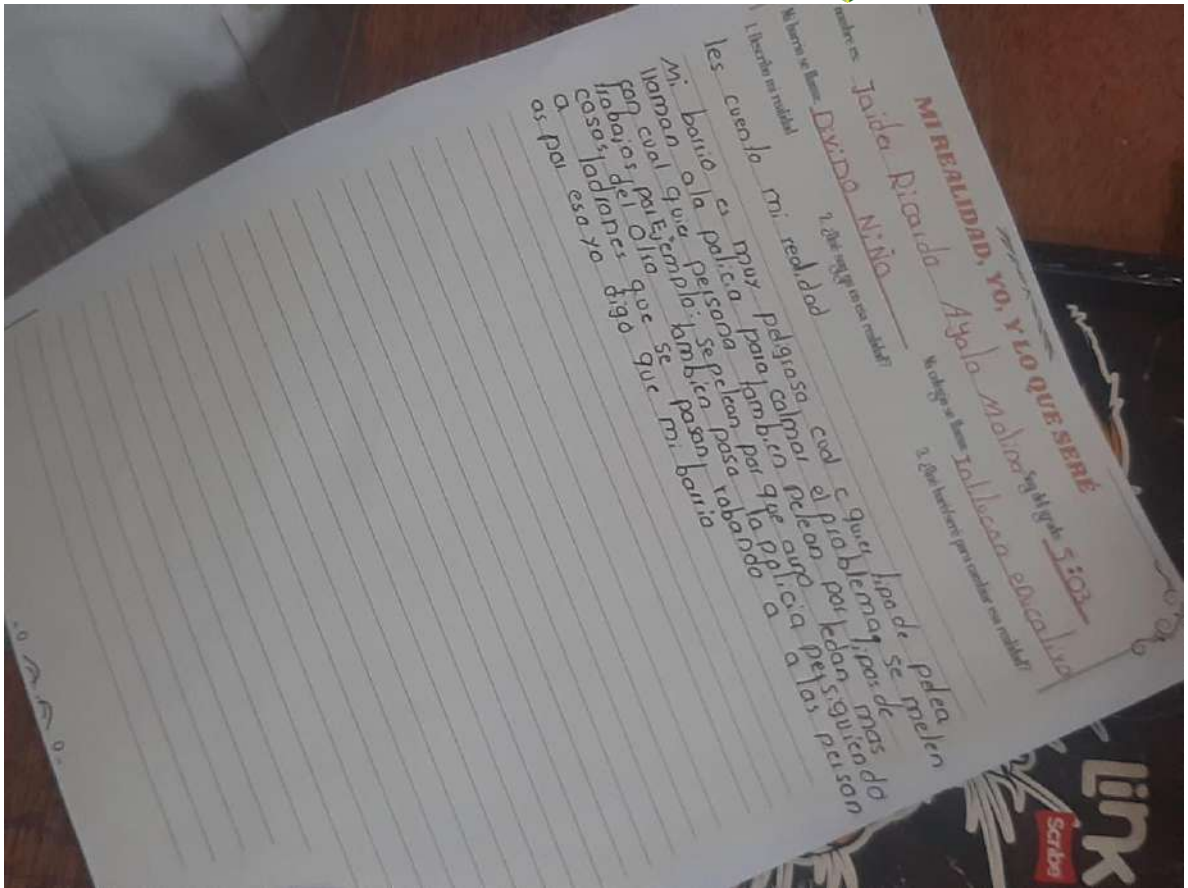 MI REALIDAD, YO, Y LO QUE SERÉ
nombre es: Jaider Ricardo Ayala Molina Soy del grado 5:03
Mi barrio se llama: Divino Niño Mi colegio se llama: educativo
1. Describo mi realidad 2. ¿Qué soy yo en esa realidad? 3. ¿Qué haré/seré para cambiar esa realidad?
les cuento mi realidad
Mi barrio es muy peligroso cual c quier tipo de pelea
llaman ala policia para calmar el problema se meten
con cual quier persona tambien pelean por mas tipos de
trabajos, por Ejemplo: se pelean por que ledan
casas, del Otro tambien pasa la policia persiguiendo
a ladrones que se pasan robando a a las person
as por eso yo digo que mi barrio
Link
Scribe